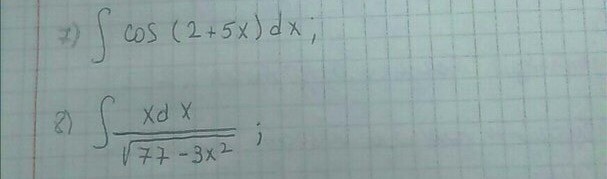 7) ∫ cos (2+5x) dx;
8) ∫ xd x / √77-3x² ;